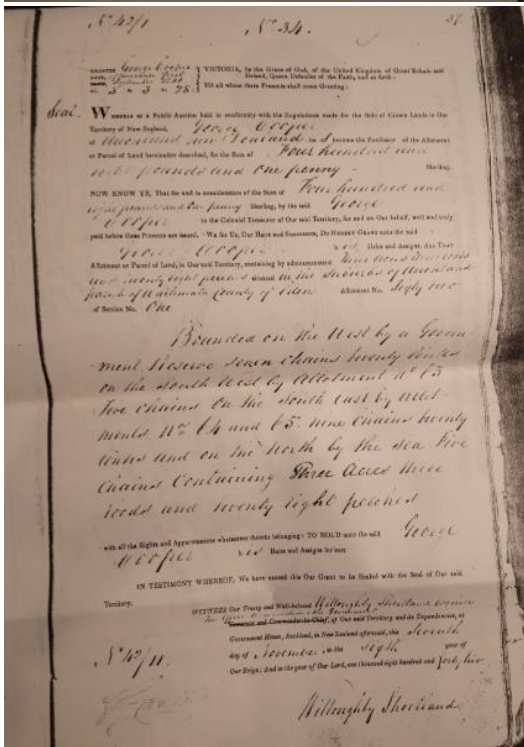 No 42/1 No 34. 37
GRANTEE George Cooper
DATE,
September 1841
A. 3 R. 3 P. 28.
VICTORIA, by the Grace of God, of the United Kingdom of Great Britain and
Ireland, Queen Defender of the Faith, and so forth:
TO all whom these Presents shall come Greeting:
Seal. WHEREAS at a Public Auction held in conformity with the Regulations made for the Sale of Crown Lands in Our
Territory of New Zealand, George Cooper
became the Purchaser of the Allotment
or Parcel of Land hereinafter described, for the Sum of Four hundred and
pounds and One penny Sterling.
NOW KNOW YE, That for and in consideration of the Sum of Four hundred and
pounds and One penny Sterling, by the said George
Cooper to the Colonial Treasurer of Our said Territory, for and on Our behalf, well and truly
paid before these Presents are issued. - We for Us, Our Heirs and Successors, DO HEREBY GRANT unto the said
George Cooper his Heirs and Assigns, ALL THAT
Allotment or Parcel of Land, in Our said Territory, containing by admeasurement Three acres three roods
and twenty eight perches situated in the Suburbs of Auckland
parish of Waitemata County of Eden Allotment No. Sixty two
of Section No. One
Bounded on the West by a Govern-
ment Reserve seven chains twenty links
on the South West by Allotment No 63
Five chains On the South East by allot
ments Nos 64 and 65 nine chains twenty
links and on the North by the sea Five
chains Containing Three Acres three
roods and twenty eight perches
with all the Rights and Appurtenances whatsoever thereto belonging: TO HOLD unto the said George
Cooper his Heirs and Assigns for ever
IN TESTIMONY WHEREOF, We have caused this Our Grant to be Sealed with the Seal of Our said
Territory.
WITNESS Our Trusty and Well-beloved Willoughby Shortland Esquire
Governor and Commander-in-Chief, of Our said Territory and its Dependencies, at
Government House, Auckland, in New Zealand aforesaid, this Seventh
day of November in the Sixth year of
Our Reign; And in the year of Our Lord, one thousand eight hundred and forty two
No 42/11.
Willoughby Shortland